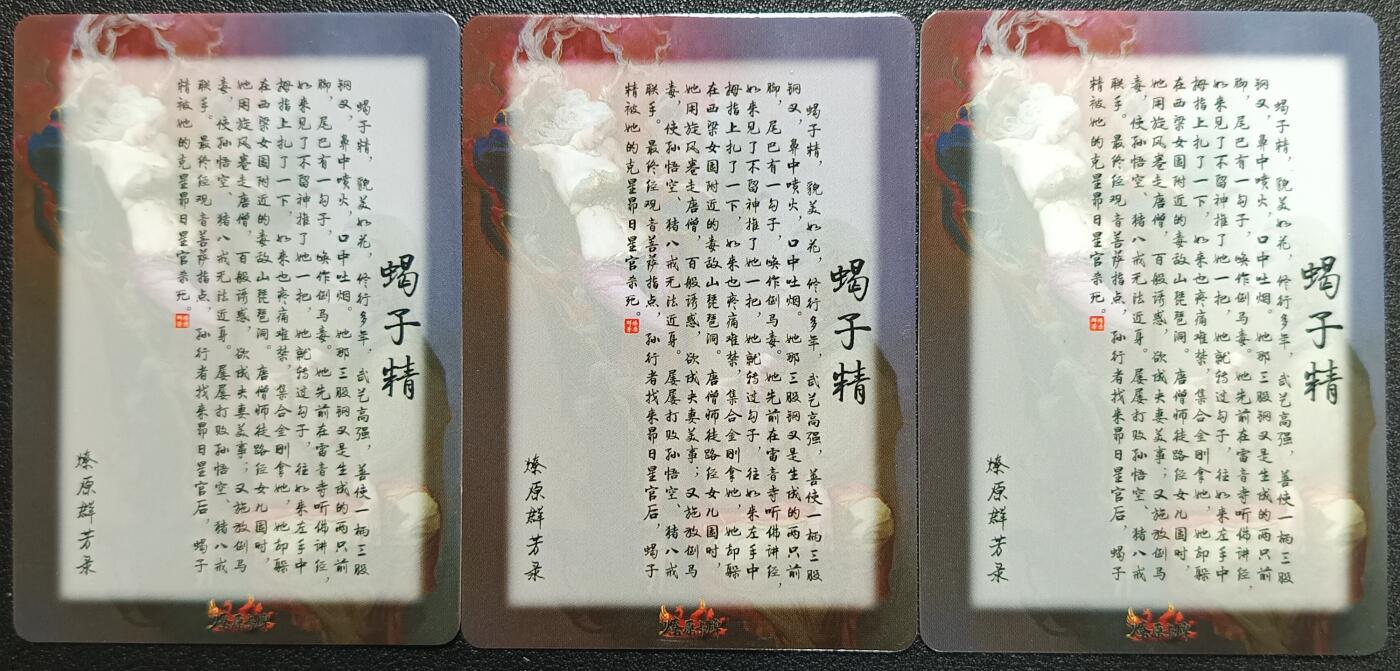 蝎子精
蝎子精，貌美如花，修行多年，武艺高强，善使一柄三股
钢叉，鼻中喷火，口中吐烟。她那三股钢叉是生成的两只前
脚，尾巴有一勾子，唤作倒马毒。她先前在雷音寺听佛讲经，
如来见了不留神推了她一把，她就转过勾子，往如来左手中
拇指上扎了一下，如来也疼痛难禁，集合金刚拿她，她却躲
在西梁女国附近的毒敌山琵琶洞。唐僧师徒路经女儿国时，
她用旋风卷走唐僧，百般诱惑，欲成夫妻美事；又施放倒马
毒，使孙悟空、猪八戒无法近身。屡屡打败孙悟空、猪八戒
联手。最终经观音菩萨指点，孙行者找来昴日星官后，蝎子
精被她的克星昴日星官杀死。
燎原群芳录
蝎子精
蝎子精，貌美如花，修行多年，武艺高强，善使一柄三股
钢叉，鼻中喷火，口中吐烟。她那三股钢叉是生成的两只前
脚，尾巴有一勾子，唤作倒马毒。她先前在雷音寺听佛讲经，
如来见了不留神推了她一把，她就转过勾子，往如来左手中
拇指上扎了一下，如来也疼痛难禁，集合金刚拿她，她却躲
在西梁女国附近的毒敌山琵琶洞。唐僧师徒路经女儿国时，
她用旋风卷走唐僧，百般诱惑，欲成夫妻美事；又施放倒马
毒，使孙悟空、猪八戒无法近身。屡屡打败孙悟空、猪八戒
联手。最终经观音菩萨指点，孙行者找来昴日星官后，蝎子
精被她的克星昴日星官杀死。
蝎子精
蝎子精，貌美如花，修行多年，武艺高强，善使一柄三股
钢叉，鼻中喷火，口中吐烟。她那三股钢叉是生成的两只前
脚，尾巴有一勾子，唤作倒马毒。她先前在雷音寺听佛讲经，
如来见了不留神推了她一把，她就转过勾子，往如来左手中
拇指上扎了一下，如来也疼痛难禁，集合金刚拿她，她却躲
在西梁女国附近的毒敌山琵琶洞。唐僧师徒路经女儿国时，
她用旋风卷走唐僧，百般诱惑，欲成夫妻美事；又施放倒马
毒，使孙悟空、猪八戒无法近身。屡屡打败孙悟空、猪八戒
联手。最终经观音菩萨指点，孙行者找来昴日星官后，蝎子
精被她的克星昴日星官杀死。
燎原群芳录